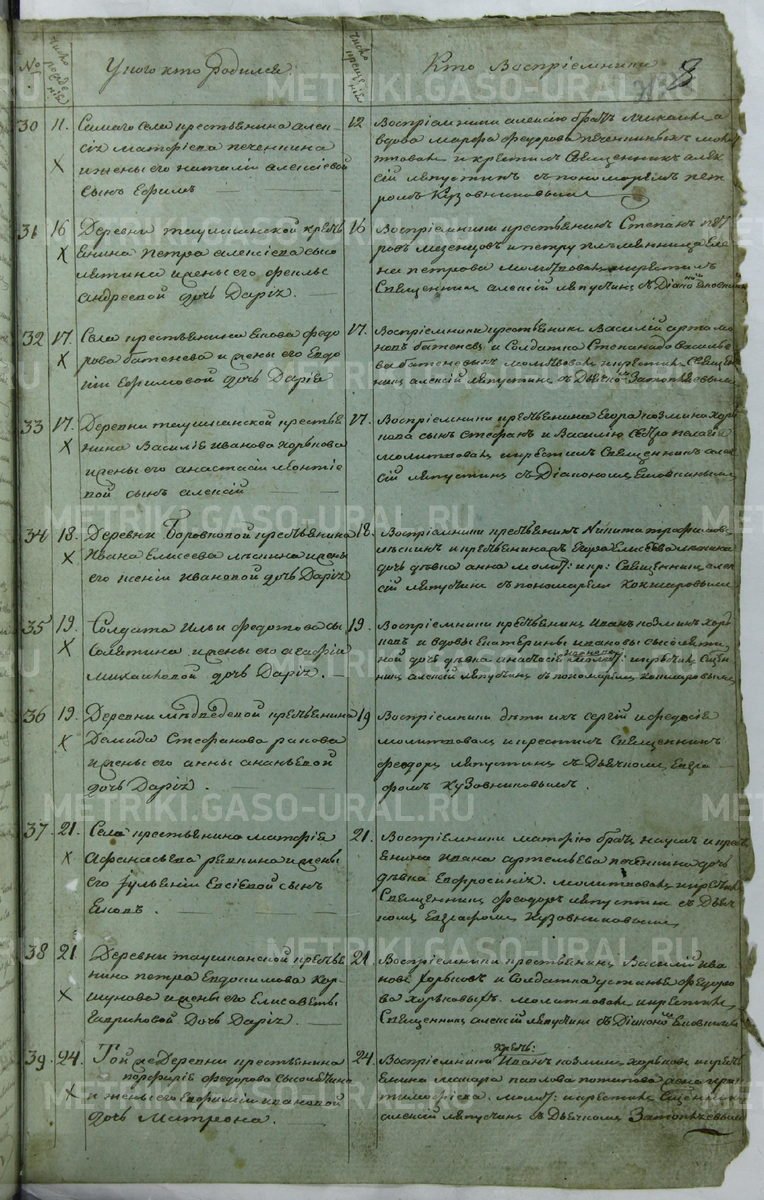 №
число рождений
У кого кто родился
число крещений
Кто Восприемники
8
METRIKI.GASO-URAL.RU
30
11.
Самаго Села крестьянина алек-
сія матфіева печенкина
и жены его наталіи алексіевой
сынъ Ефимъ
12
Воспріемники алексію братъ
вдова марфа федорова печенкиныхъ
и крестилъ Священникъ алек-
сій ляпустинъ съ пономаремъ пет-
ромъ Кузовниковымъ
31
16
Деревни таушканской кресть
янина петра алексіева сысо
лятина и жены его феклы
андреевой дочь Дарія.
16
Воспріемники крестьянинъ Степанъ пет
ровъ мезенцовъ и петру племянница еле
на петрова молитвовалъ и крестилъ
Священникъ алексій ляпустинъ съ Діакономъ
32
17.
Села крестьянина Якова федо
рова батенева и жены его Евдо
кіи Ефимовой дочь Дарія
17.
Воспріемники крестьянинъ Василій артамо
новъ батеневъ и Солдатка Степанида василье
ва батеневыхъ молитвовалъ и крестилъ Священ
никъ алексій ляпустинъ съ Дьячкомъ
33
17
Деревни таушканской крестья
нина Василія иванова хорькова
и жены его анастасіи леонтіе
вой сынъ алексій
17.
Воспріемники крестьянина Егора козмина хорь
кова сынъ Стефанъ и Василію сестра пелагія
молитвовалъ и крестилъ Священникъ алек
сій ляпустинъ съ Діакономъ
34
18.
Деревни Боровковой крестьянина
Ивана Елисеева ляпина и жены
его ксеніи ивановой дочь Дарія
18.
Воспріемники крестьянинъ Никита трофимовъ
и крестьянина Егора Елисеева
дочь девка анна молит: и кр: Священникъ алек
сій ляпустинъ съ пономаремъ Кокшаровымъ
35
19.
Солдата Ильи федотова сы
солятина и жены его агафіи
михайловой дочь Дарія.
19.
Воспріемники крестьянинъ Иванъ козминъ хорь
ковъ и вдовы Екатерины ивановы сысолятин
ной дочь девка молит: и крестилъ Священ
никъ алексій ляпустинъ съ пономаремъ Кокшаровымъ
36
19.
Деревни медведевой крестьянина
Демида Стефанова ракова
и жены его анны ананьевой
дочь Дарія.
19
Воспріемники дети ихъ сергій и федосія
молитвовалъ и крестилъ Священникъ
феодоръ ляпустинъ съ Дьячкомъ Евгра
фомъ Кузовниковымъ.
37
21.
Села крестьянина матфія
Афанасьева репкина и жены
его Іуліаніи Евсіевой сынъ
Яковъ.
21.
Воспріемники матфію братъ наумъ и крест
янина Ивана артемьева печенкина дочь
девка Евфросинія. молитвовалъ и крестилъ
Священникъ феодоръ ляпустинъ съ Дьяч
комъ Евграфомъ Кузовниковымъ
38
21
Деревни таушканской крестья
нина петра Евдокимова кор-
шунова и жены его Елисаветы
гавриловой Дочь Дарія.
21
Воспріемники крестьянинъ Василій ива
новъ хорьковъ и Солдатка устинья федоро
ва хорьковыхъ. молитвовалъ и крестилъ
Священникъ алексій ляпустинъ съ Діакономъ
39.
24.
Той же Деревни крестьянина
порфирія федорова Сысолятина
и жены его Евфиміи ивановой
дочь Матрона.
24.
Воспріемники крест: Иванъ козминъ хорьковъ и крест
янина макара павлова потапова жена
тимофіева. молит: и крестилъ Священникъ
алексій ляпустинъ съ Дьячкомъ